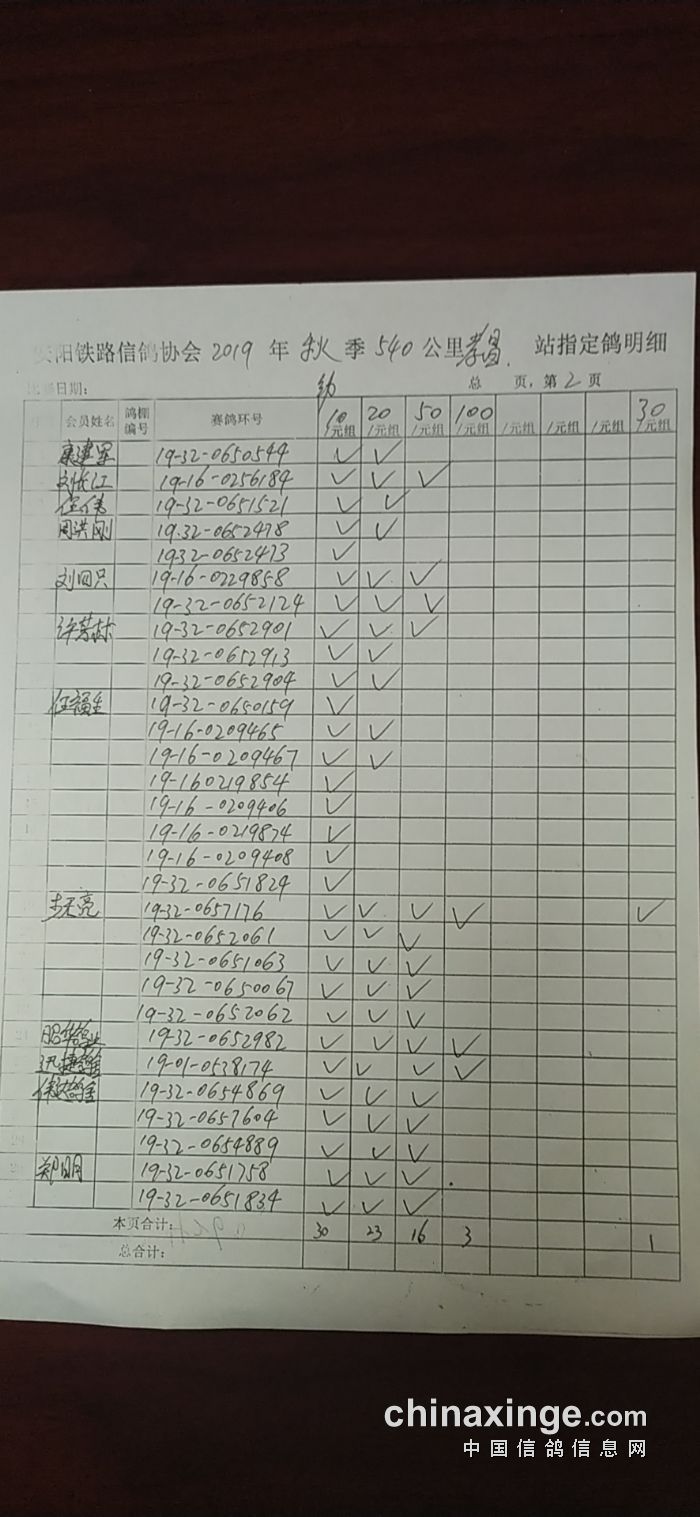 阳铁路信鸽协会 2019 年 秋 季 540 公里 孝昌 站指定鸽明细
日期: 幼 总 页,第 2 页
会员姓名 鸽棚编号 赛鸽环号 10/元组 20/元组 50/元组 100/元组 /元组 /元组 /元组 30/元组
康建军 19-32-0650544 ✓ ✓
刘长江 19-16-0256184 ✓ ✓ ✓
任伟 19-32-0651521 ✓ ✓
周洪刚 19.32-0652478 ✓ ✓
1932-0652473 ✓
刘回只 19-16-0229858 ✓ ✓ ✓
19-32-0652124 ✓ ✓ ✓
许芳林 19-32-0652901 ✓ ✓ ✓
19-32-0652913 ✓ ✓
19-32-0652904 ✓ ✓
任福生 19-32-0650159 ✓
19-16-0209465 ✓ ✓
19-16-0209467 ✓ ✓
19-160219854 ✓
19-16-0209406 ✓
19-16-0219874 ✓
19-16-0209408 ✓
19-32-0651824 ✓
19-32-0657176 ✓ ✓ ✓ ✓ ✓
19-32-0652061 ✓ ✓ ✓
19-32-0651063 ✓ ✓ ✓
19-32-0650067 ✓ ✓ ✓
19-32-0652062 ✓ ✓ ✓
昭华鸽业 19-32-0652982 ✓ ✓ ✓ ✓
19-01-0538174 ✓ ✓ ✓ ✓
19-32-0654869 ✓ ✓ ✓
19-32-0657604 ✓ ✓ ✓
19-32-0654889 ✓ ✓ ✓
郑明 19-32-0651758 ✓ ✓ ✓
19-32-0651834 ✓ ✓ ✓
本页合计: 30 23 16 3 1
总合计:
chinaxinge.com
中国信鸽信息网